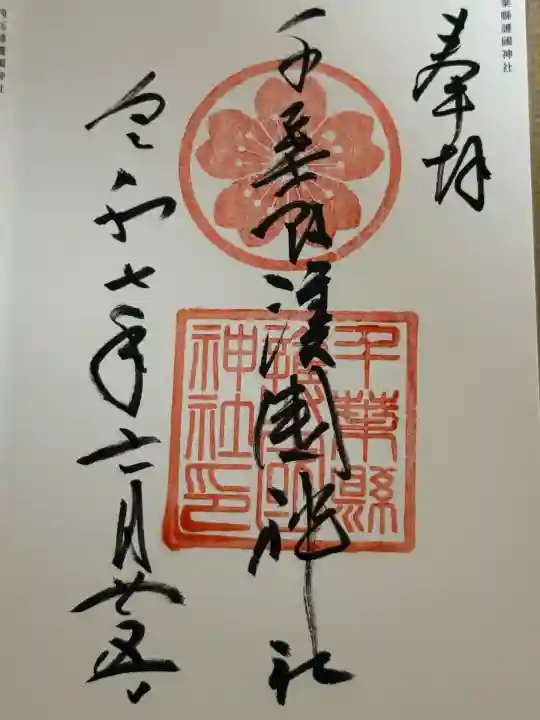 葉縣護國神社
奉拝
千葉縣護國神社
千葉縣
護國
神社印
令和七年六月廿五日
護國神社